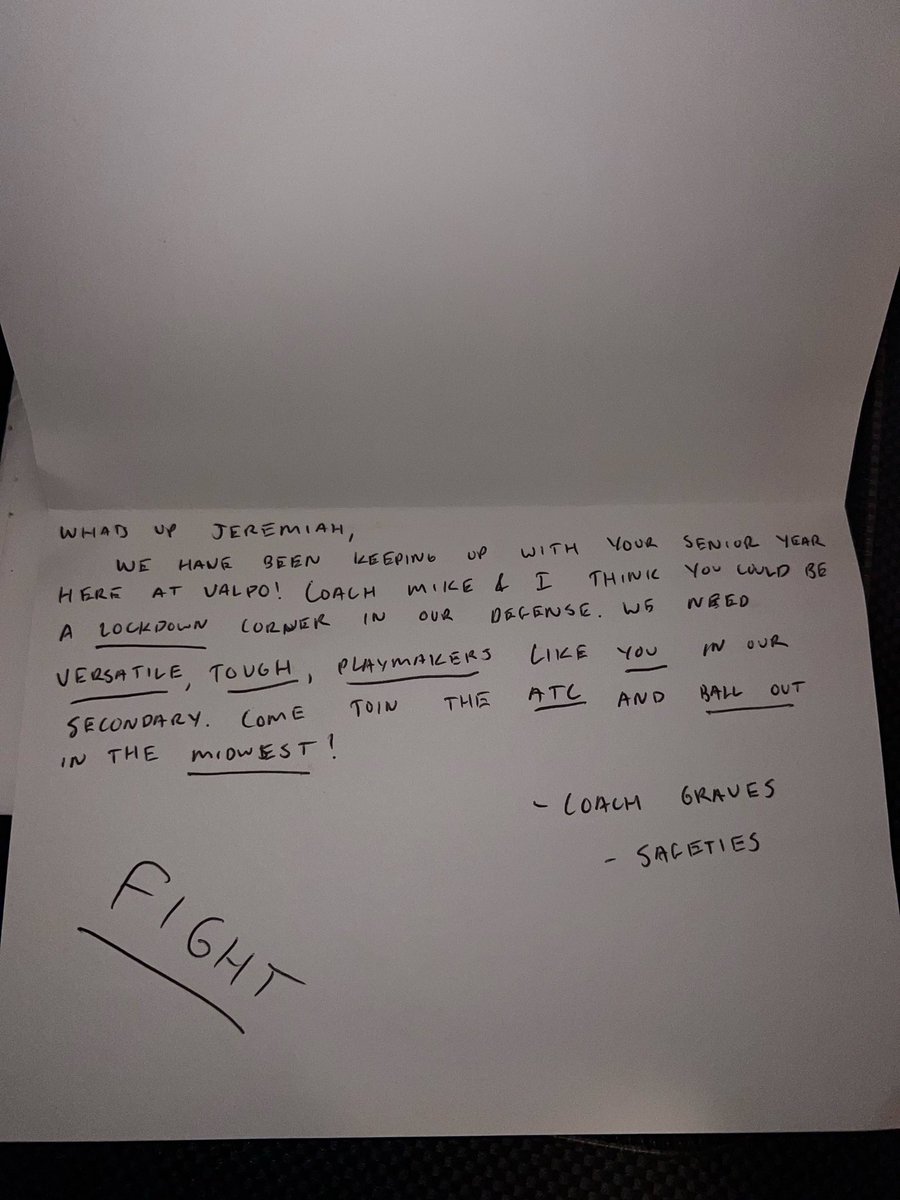 WHAD UP JEREMIAH,
WE HAVE BEEN KEEPING UP WITH YOUR SENIOR YEAR
HERE AT VALPO! COACH MIKE & I THINK YOU COULD BE
A LOCKDOWN CORNER IN OUR DEFENSE. WE NEED
VERSATILE, TOUGH, PLAYMAKERS LIKE YOU IN OUR
SECONDARY. COME JOIN THE ATC AND BALL OUT
IN THE MIDWEST!
- COACH GRAVES
- SAFETIES
FIGHT